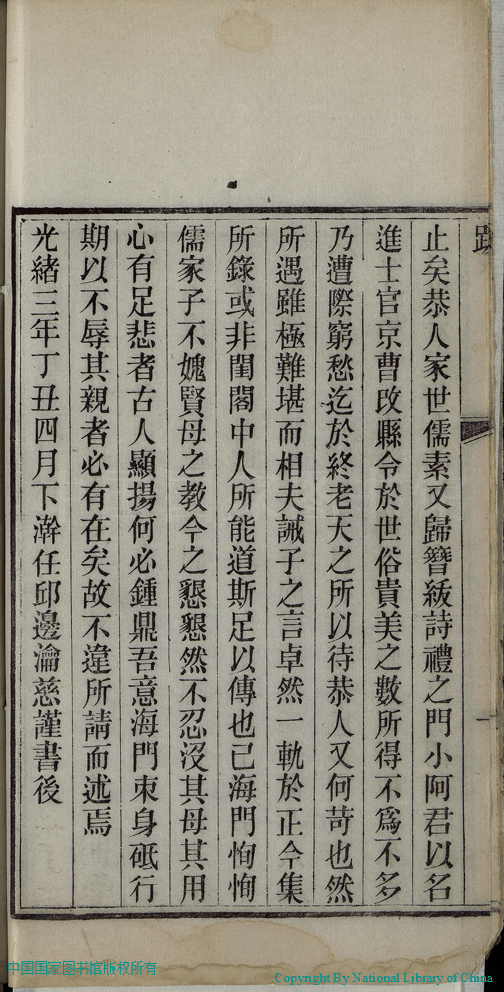 跋
止矣恭人家世儒素又歸簪紱詩禮之門小阿君以名
進士官京曹改縣令於世俗貴美之數所得不爲不多
乃遭際窮愁迄於終老天之所以待恭人又何苛也然
所遇雖極難堪而相夫誡子之言卓然一軌於正今集
所錄或非閨閣中人所能道斯足以傳也已海門恂恂
儒家子不媿賢母之教今之懇懇然不忍沒其母其用
心有足悲者古人顯揚何必鍾鼎吾意海門束身砥行
期以不辱其親者必有在矣故不違所請而述焉
光緒三年丁丑四月下澣任邱邊瀹慈謹書後
一
中国国家图书馆版权所有
Copyright By National Library of China